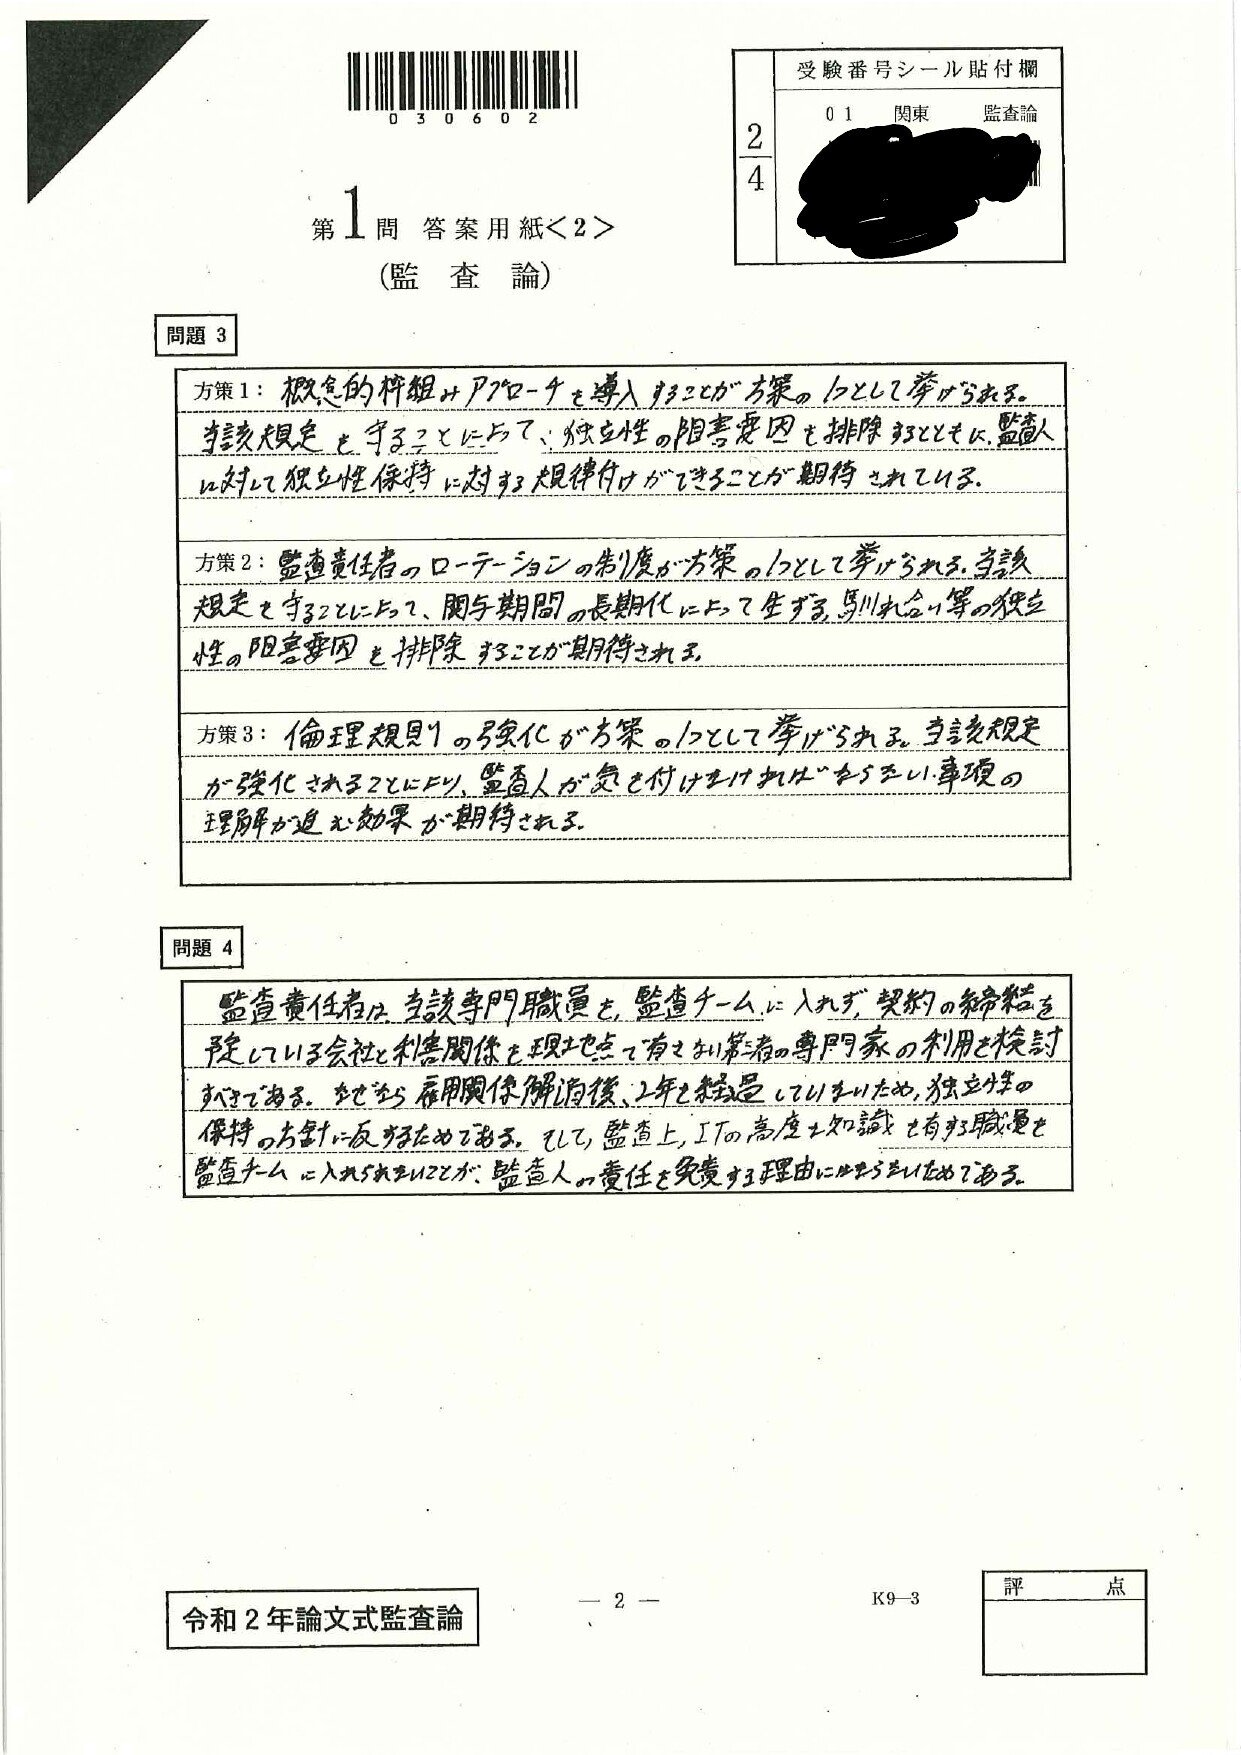 030602
受験番号シール貼付欄
01 関東 監査論
2/4
第1問 答案用紙<2>
(監査論)
問題 3
方策1: 概念的枠組みアプローチを導入することが方策の1つとして挙げられる。
当該規定を守ることによって、独立性の阻害要因を排除するとともに、監査人
に対して独立性保持に対する規律付けができることが期待されている。
方策2: 監査責任者のローテーションの制度が方策の1つとして挙げられる。当該
規定を守ることによって、関与期間の長期化によって生ずる、馴れ合い等の独立
性の阻害要因を排除することが期待される。
方策3: 倫理規則の強化が方策の1つとして挙げられる。当該規定
が強化されることにより、監査人が気を付けなければならない事項の
理解が進む効果が期待される。
問題 4
監査責任者は、当該専門職員を、監査チームに入れず、契約の締結を
予定している会社と利害関係を現地点で有さない第三者の専門家の利用を検討
すべきである。なぜなら雇用関係解消後、2年を経過していないため、独立性の
保持の方針に反するためである。そして、監査上、ITの高度な知識を有する職員を
監査チームに入れられないことが、監査人の責任を免責する理由にはならないためである。
令和2年論文式監査論
— 2 —
K9—3
評点